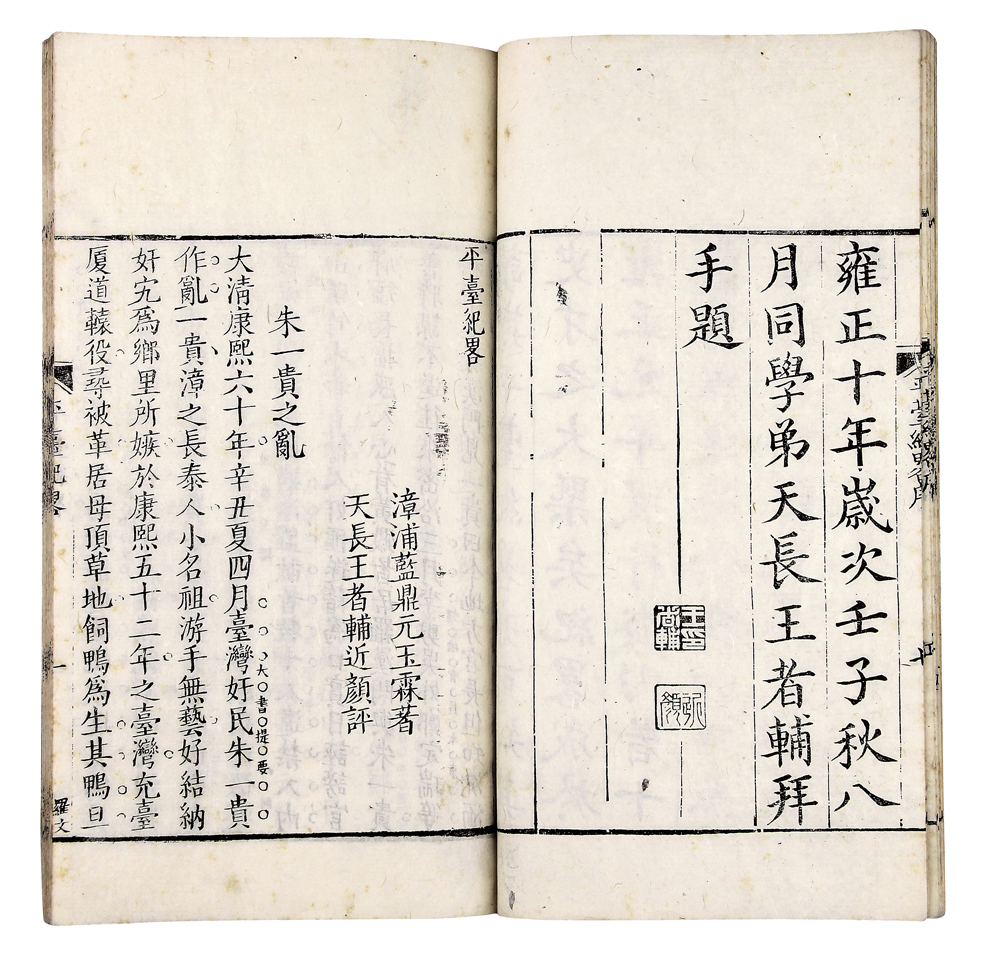 雍正十年歲次壬子秋八
月同學弟天長王者輔拜
手題
平臺紀畧
漳浦藍鼎元玉霖著
天長王者輔近顏評
朱一貴之亂
大清康熙六十年辛丑夏四月臺灣奸民朱一貴
大書提要
作亂一貴漳之長泰人小名祖游手無藝好結納
奸宄爲鄉里所嫉於康熙五十二年之臺灣充臺
厦道轅役尋被革居母頂草地飼鴨爲生其鴨旦
平臺紀畧
一
羅文